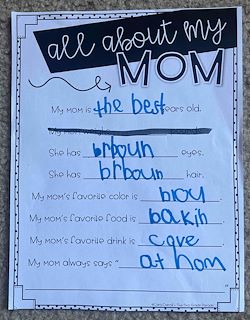 all about my
MOM
My mom is the best years old.
She has brboun eyes.
She has brboun hair.
My mom's favorite color is brou.
My mom's favorite food is bakin.
My mom's favorite drink is cave.
My mom always says "at hom